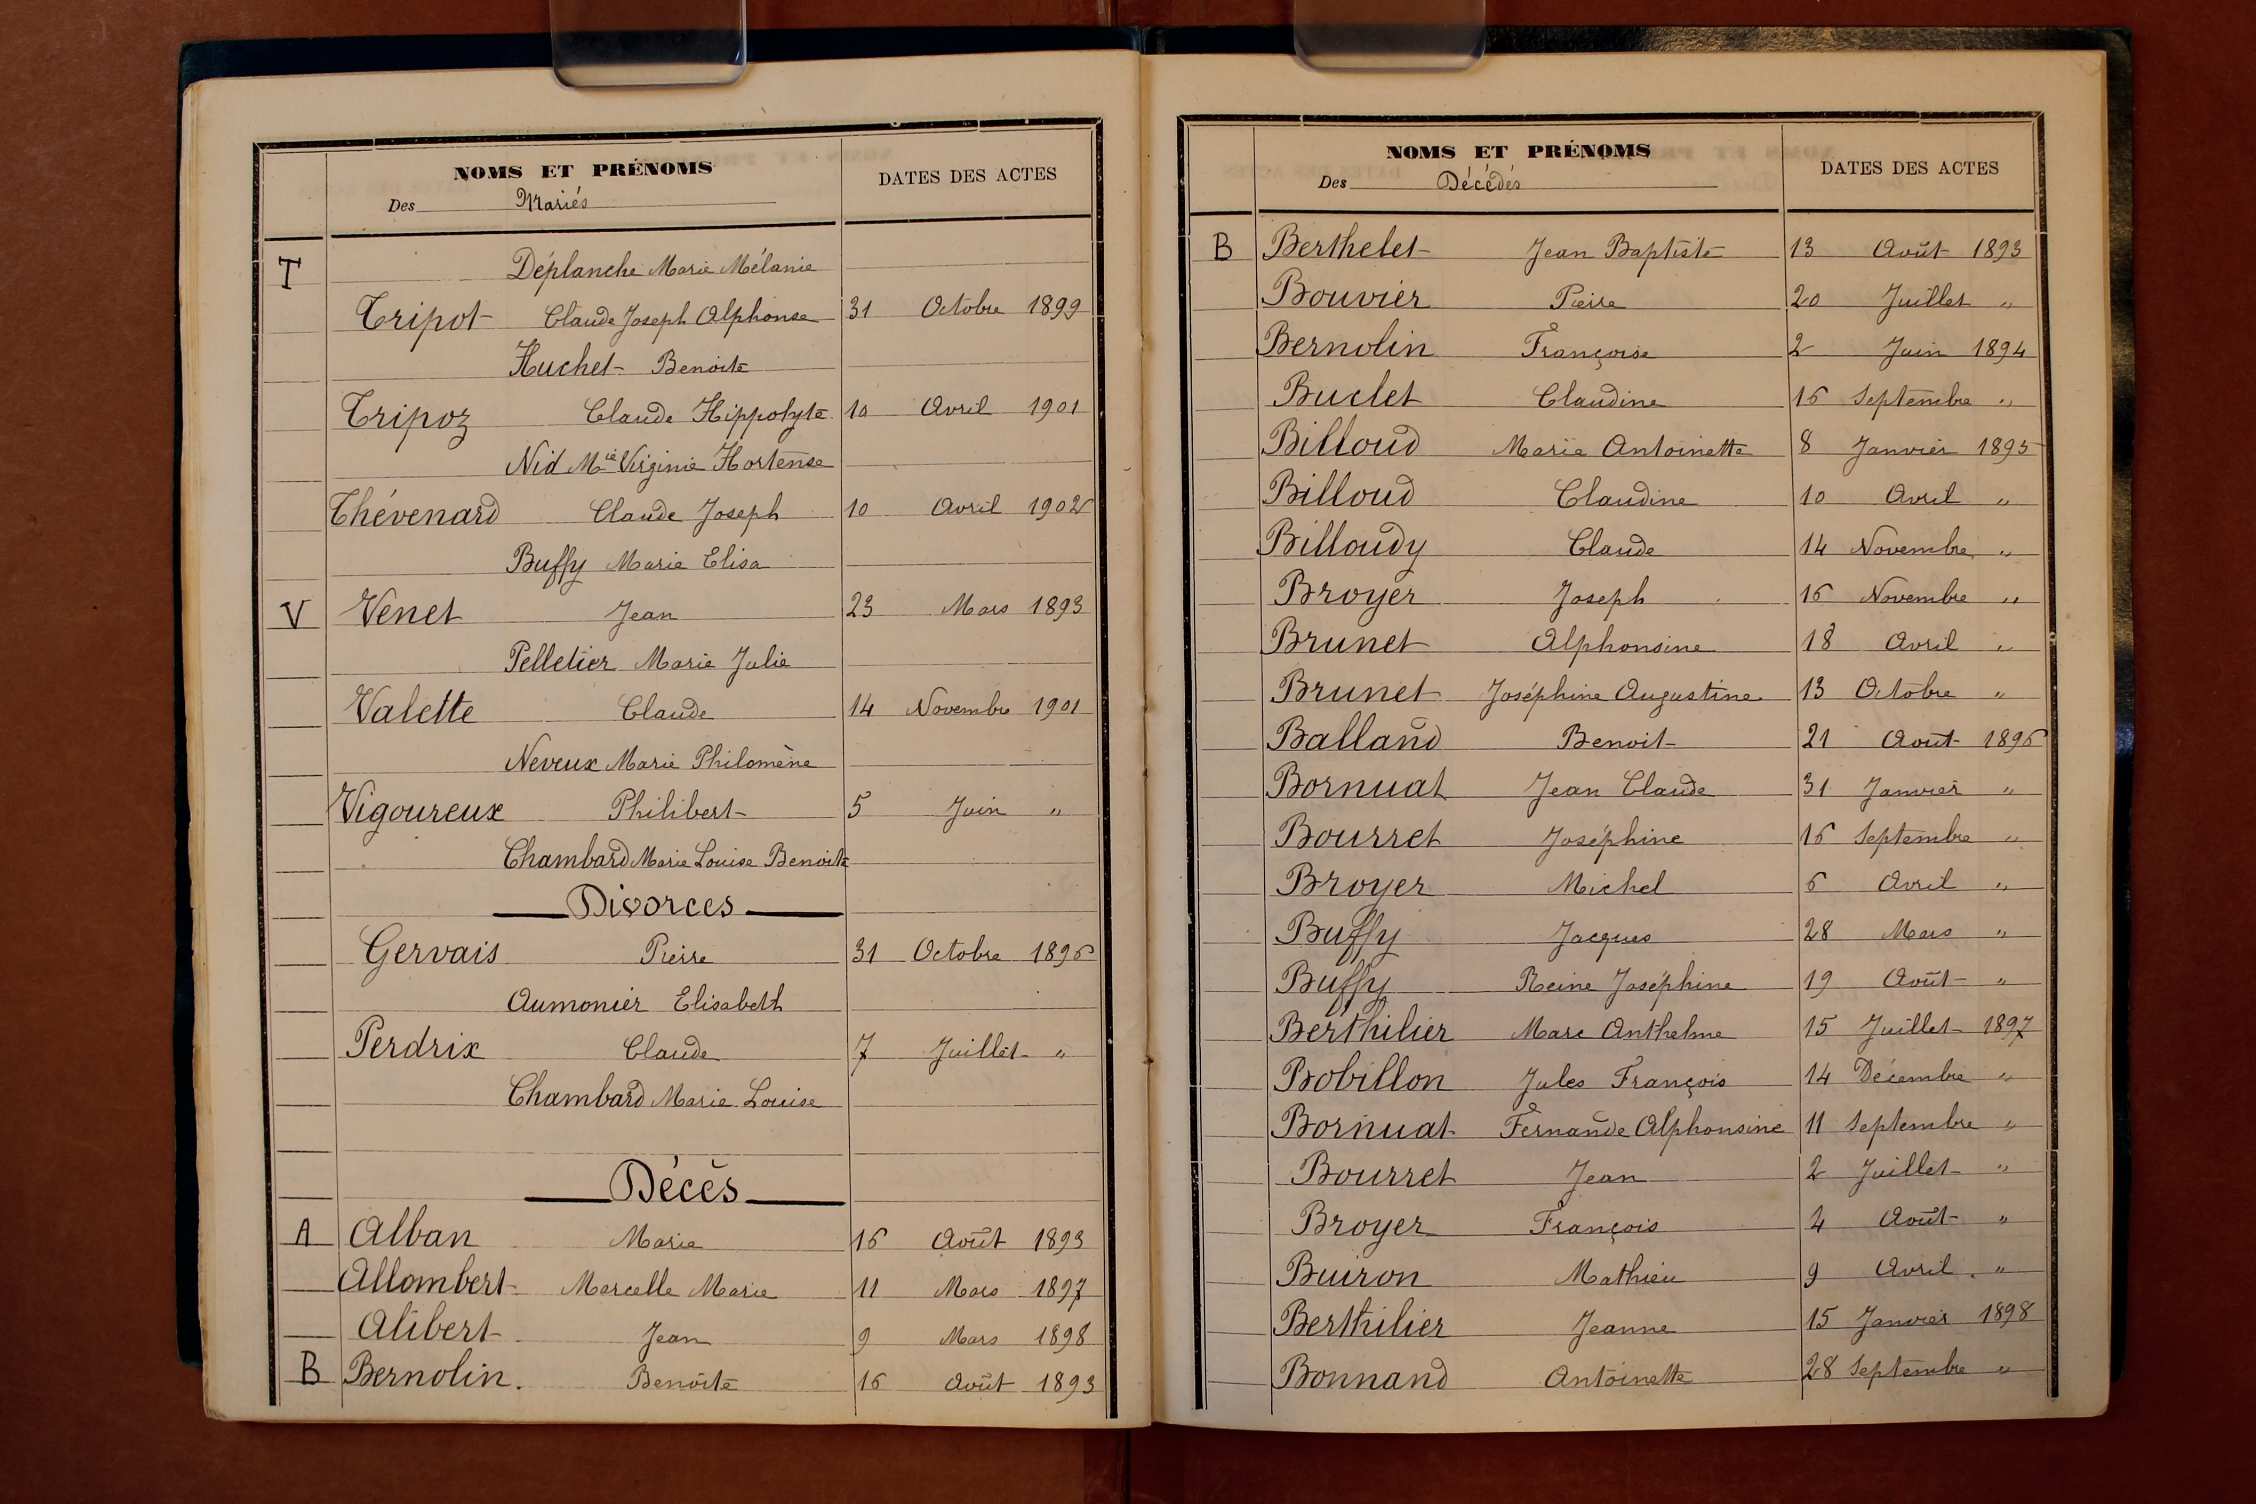 NOMS ET PRÉNOMS
Des Mariés
DATES DES ACTES
T Déplanche Marie Mélanie
Tripot Claude Joseph Alphonse 31 Octobre 1899
Huchet Benoite
Tripoz Claude Hippolyte 10 Avril 1901
Nid Mie Virginie Hortense
Thévenard Claude Joseph 10 Avril 1902
Buffy Marie Elisa
V Venet Jean 23 Mars 1893
Pelletier Marie Julie
Valette Claude 14 Novembre 1901
Neveux Marie Philomène
Vigoureux Philibert 5 Juin "
Chambard Marie Louise Benoite
Divorces
Gervais Pierre 31 Octobre 1896
Aumonier Elisabeth
Perdrix Claude 7 Juillet "
Chambard Marie Louise
Décès
A Alban Marie 16 Août 1893
Allombert Marcelle Marie 11 Mars 1897
Alibert Jean 9 Mars 1898
B Bernolin. Benoite 16 Août 1893
NOMS ET PRÉNOMS
Des Décédés
DATES DES ACTES
B Berthelet Jean Baptiste 13 Août 1893
Bouvier Pierre 20 Juillet "
Bernolin Françoise 2 Juin 1894
Buclet Claudine 16 Septembre "
Billoud Marie Antoinette 8 Janvier 1895
Billoud Claudine 10 Avril "
Billoudy Claude 14 Novembre "
Broyer Joseph 16 Novembre "
Brunet Alphonsine 18 Avril "
Brunet Joséphine Augustine 13 Octobre "
Balland Benoit 21 Août 1896
Bornuat Jean Claude 31 Janvier "
Bourret Joséphine 16 Septembre "
Broyer Michel 6 Avril "
Buffy Jacques 28 Mars "
Buffy Reine Joséphine 19 Août "
Berthilier Marc Anthelme 15 Juillet 1897
Bobillon Jules François 14 Décembre "
Bornuat Fernande Alphonsine 11 Septembre "
Bourret Jean 2 Juillet "
Broyer François 4 Août "
Buiron Mathieu 9 Avril "
Berthilier Jeanne 15 Janvier 1898
Bonnand Antoinette 28 Septembre "